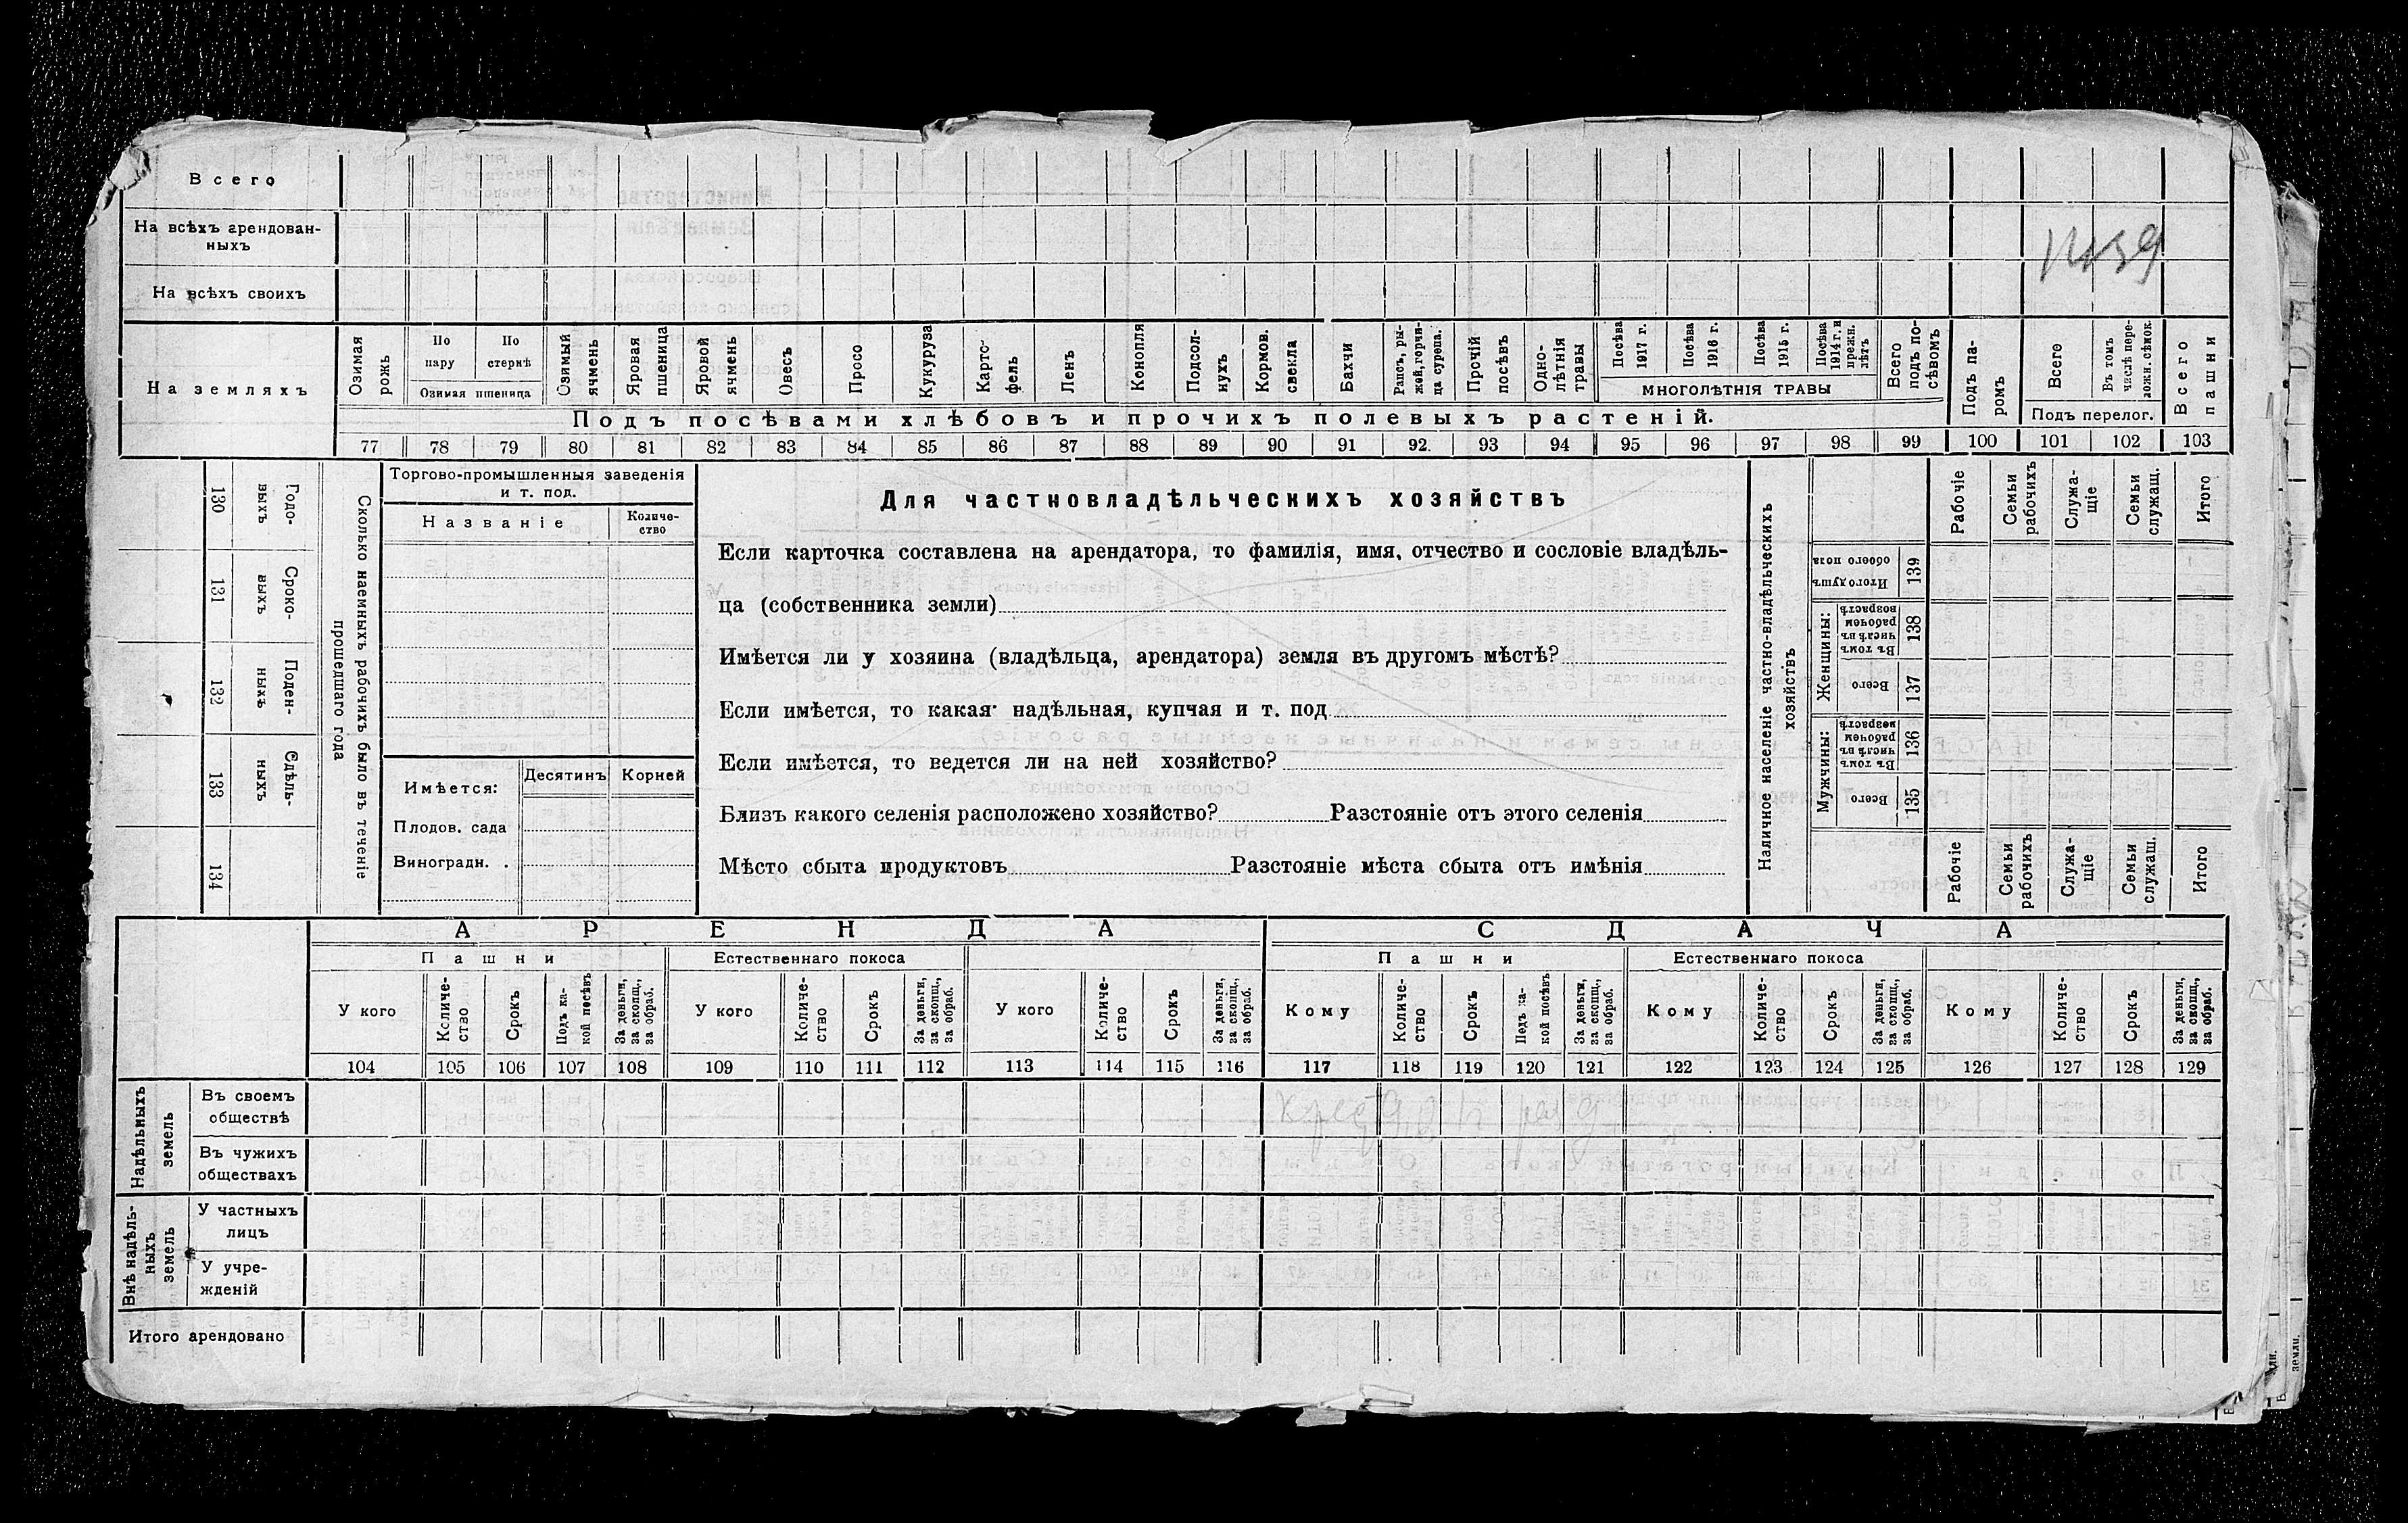 Всего
На всѣхъ арендован-
ныхъ
На всѣхъ своихъ
На земляхъ
Озимая рожь
По пару
По стернѣ
Озимая пшеница
Озимый ячмень
Яровая пшеница
Яровой ячмень
Овесъ
Просо
Кукуруза
Карто-
фель
Ленъ
Конопля
Подсол-
нухъ
Кормов. свекла
Бахчи
Рапсъ, ры-
жей, горчи-
ца суреша.
Прочій посѣвъ
Одно-
лѣтнія травы
Посѣва 1917 г.
Посѣва 1916 г.
Посѣва 1915 г.
Посѣва 1914 г. и прежн. лѣтъ
МНОГОЛѢТНІЯ ТРАВЫ
Всего подъ по-
сѣвомъ
Подъ па-
ромъ
Всего
Въ томъ числѣ пере-
ложн. сѣнок.
Подъ перелог.
Всего пашни
Подъ посѣвами хлѣбовъ и прочихъ полевыхъ растеній.
77 78 79 80 81 82 83 84 85 86 87 88 89 90 91 92. 93 94 95 96 97 98 99 100 101 102 103
130 Годо-
выхъ
131 Сроко-
выхъ
132 Поден-
ныхъ
133 Сдѣль-
ныхъ
134
Сколько наемныхъ рабочихъ было въ теченіе
прошедшаго года
Торгово-промышленныя заведенія
и т. под.
Названіе
Количе-
ство
Имѣется:
Десятинъ Корней
Плодов. сада
Виноградн. .
Для частновладѣльческихъ хозяйствъ
Если карточка составлена на арендатора, то фамилія, имя, отчество и сословіе владѣль-
ца (собственника земли)
Имѣется ли у хозяина (владѣльца, арендатора) земля въ другомъ мѣстѣ?
Если имѣется, то какая: надѣльная, купчая и т. под
Если имѣется, то ведется ли на ней хозяйство?
Близъ какого селенія расположено хозяйство? Разстояніе отъ этого селенія
Мѣсто сбыта продуктовъ Разстояніе мѣста сбыта отъ имѣнія
Наличное населеніе частно-владѣльческихъ
хозяйствъ
Рабочіе
Семьи рабочихъ
Служа-
щіе
Семьи служащ.
Итого
Итого душъ обоего пола 139
Женщины:
Въ томъ числѣ въ рабочем возрастѣ 138
Всего 137
Мужчины:
Въ томъ числѣ въ рабочем возрастѣ 136
Всего 135
Рабочіе
Семьи рабочихъ
Служа-
щіе
Семьи служащ.
Итого
АРЕНДА
СДАЧА
Пашни
Естественнаго покоса
Пашни
Естественнаго покоса
У кого
Количе-
ство
Срокъ
Подъ ка-
кой посѣвъ
За деньги, за скопщ., за обраб.
У кого
Количе-
ство
Срокъ
За деньги, за скопщ., за обраб.
У кого
Количе-
ство
Срокъ
За деньги, за скопщ., за обраб.
Кому
Количе-
ство
Срокъ
Подъ ка-
кой посѣвъ
За деньги, за скопщ., за обраб.
Кому
Количе-
ство
Срокъ
За деньги, за скопщ., за обраб.
Кому
Количе-
ство
Срокъ
За деньги, за скопщ., за обраб.
104 105 106 107 108 109 110 111 112 113 114 115 116 117 118 119 120 121 122 123 124 125 126 127 128 129
Надѣльныхъ земель
Въ своемъ
обществѣ
Въ чужихъ
обществахъ
Внѣ надѣль-
ныхъ земель
У частныхъ
лицъ
У учре-
жденій
Итого арендовано
земли.